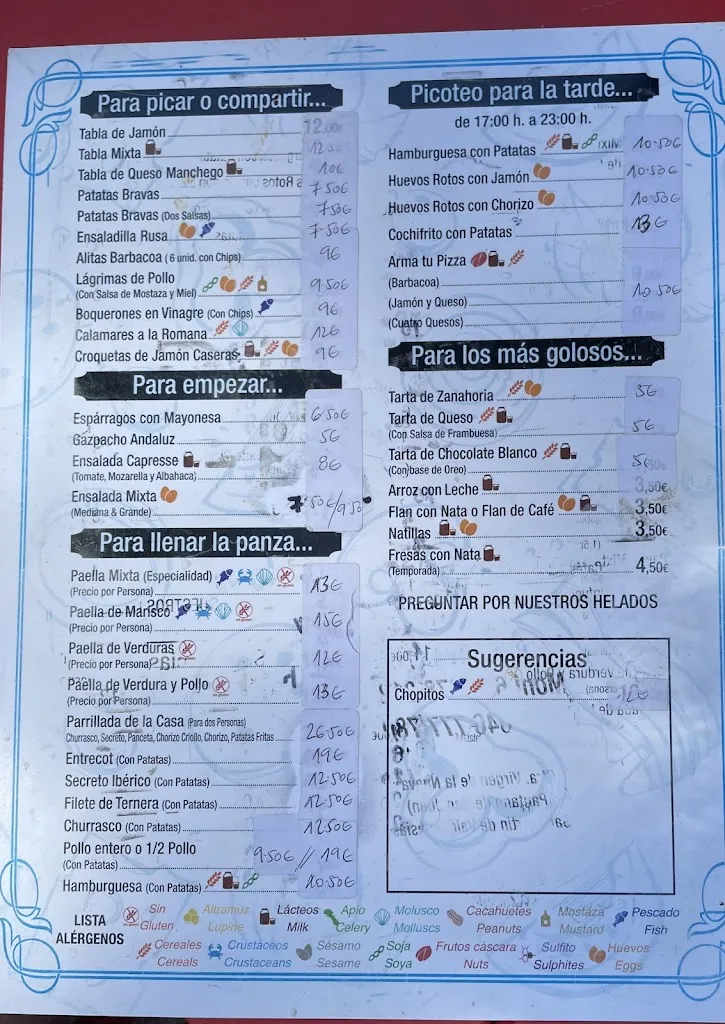 Para picar o compartir...
Tabla de Jamón 12,00€
Tabla Mixta
Tabla de Queso Manchego 10€
Patatas Bravas 7'50€
Patatas Bravas (Dos Salsas) 7'50€
Ensaladilla Rusa 7'50€
Alitas Barbacoa ( 6 unid. con Chips) 9€
Lágrimas de Pollo
(Con Salsa de Mostaza y Miel) 9'50€
Boquerones en Vinagre (Con Chips) 9€
Calamares a la Romana 12€
Croquetas de Jamón Caseras 9€
Para empezar...
Espárragos con Mayonesa 6'50€
Gazpacho Andaluz 5€
Ensalada Capresse 8€
(Tomate, Mozarella y Albahaca)
Ensalada Mixta
(Mediana & Grande) 7'50€/9'50
Para llenar la panza...
Paella Mixta (Especialidad) 13€
(Precio por Persona)
Paella de Marisco 15€
(Precio por Persona)
Paella de Verduras 12€
(Precio por Persona)
Paella de Verdura y Pollo 13€
(Precio por Persona)
Parrillada de la Casa (Para dos Personas) 26'50€
Churrasco, Secreto, Panceta, Chorizo Criollo, Chorizo, Patatas Fritas
Entrecot (Con Patatas) 19€
Secreto Ibérico (Con Patatas) 12'50€
Filete de Ternera (Con Patatas) 12'50€
Churrasco (Con Patatas) 12'50€
Pollo entero o 1/2 Pollo
(Con Patatas) 9'50€ // 19€
Hamburguesa (Con Patatas) 10'50€
Picoteo para la tarde...
de 17:00 h. a 23:00 h.
Hamburguesa con Patatas 10'50€
Huevos Rotos con Jamón 10'50€
Huevos Rotos con Chorizo 10'50€
Cochifrito con Patatas 13€
Arma tu Pizza
(Barbacoa)
(Jamón y Queso) 10'50€
(Cuatro Quesos)
Para los más golosos...
Tarta de Zanahoria 5€
Tarta de Queso 5€
(Con Salsa de Frambuesa)
Tarta de Chocolate Blanco 5€
(Con base de Oreo)
Arroz con Leche 3,50€
Flan con Nata o Flan de Café 3,50€
Natillas 3,50€
Fresas con Nata
(Temporada) 4,50€
PREGUNTAR POR NUESTROS HELADOS
Sugerencias
Chopitos 12€
LISTA ALÉRGENOS
Sin Gluten
Altramuz Lupine
Lácteos Milk
Apio Celery
Molusco Molluscs
Cacahuetes Peanuts
Mostaza Mustard
Pescado Fish
Cereales Cereals
Crustáceos Crustaceans
Sésamo Sesame
Soja Soya
Frutos cáscara Nuts
Sulfito Sulphites
Huevos Eggs